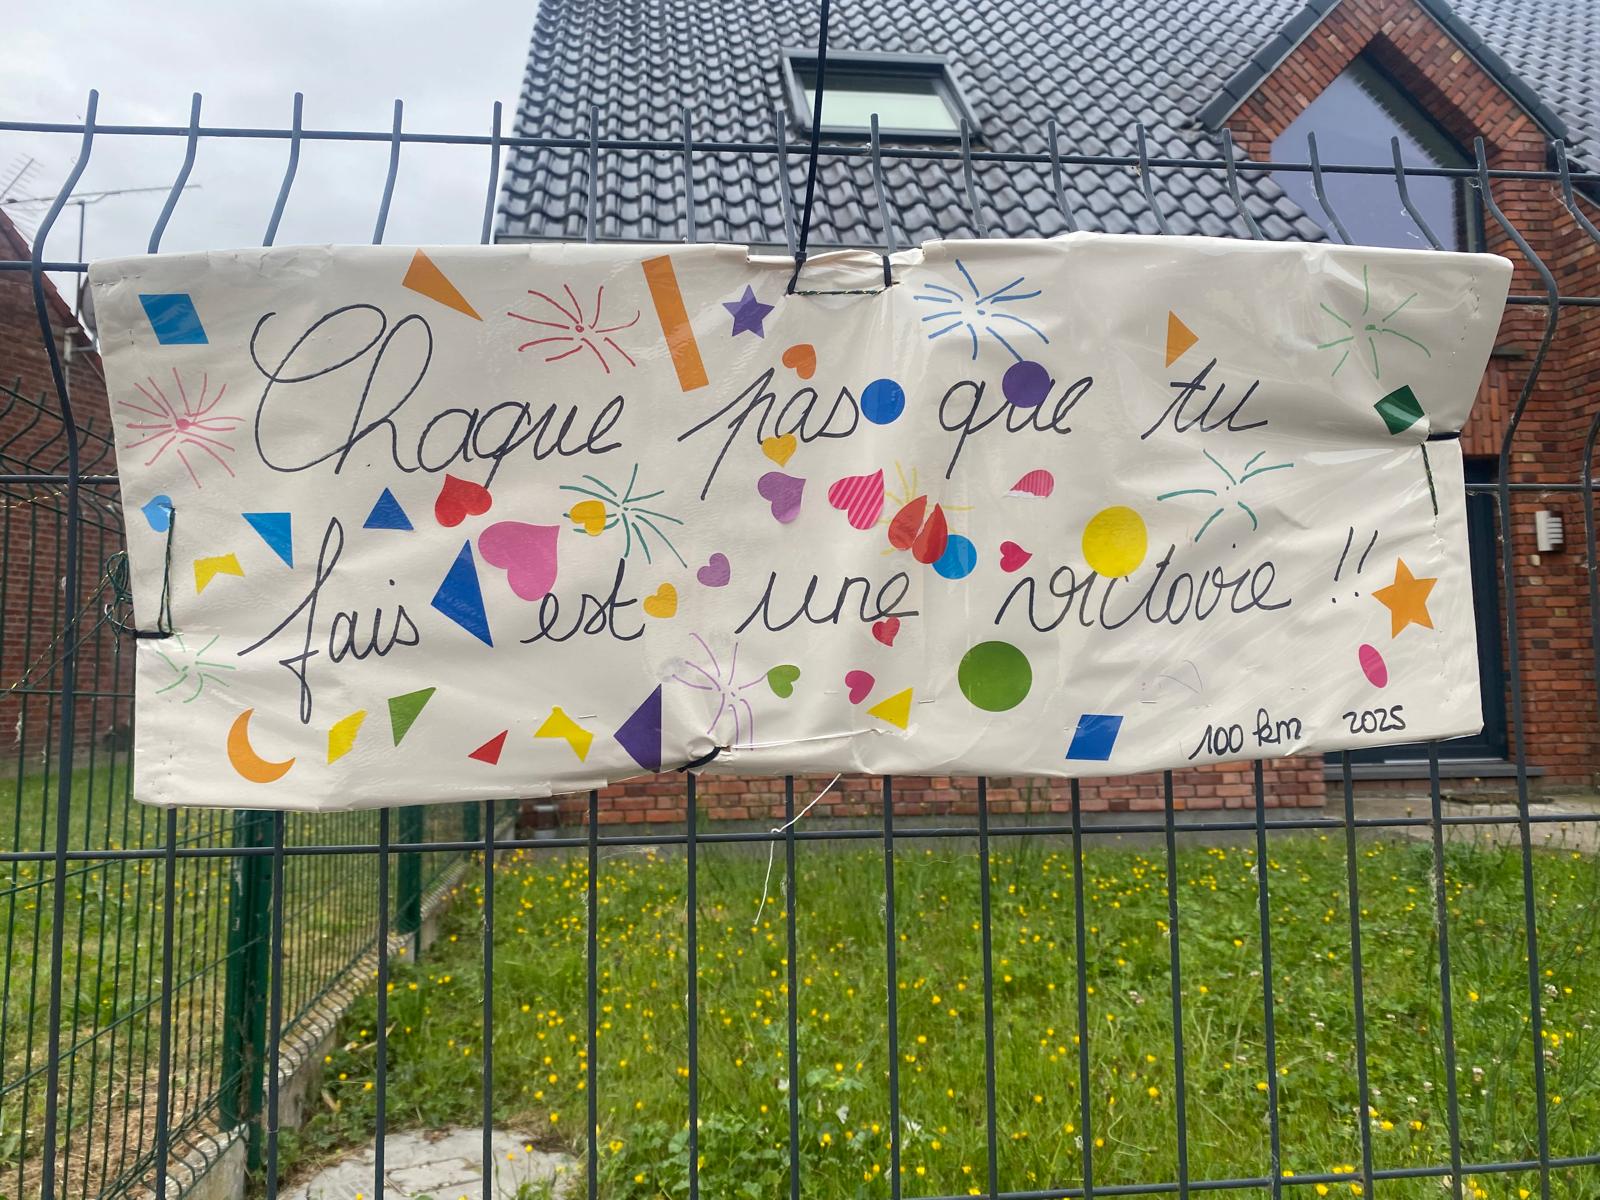 Chaque pas que tu
fais est une victoire !!
100 km 2025